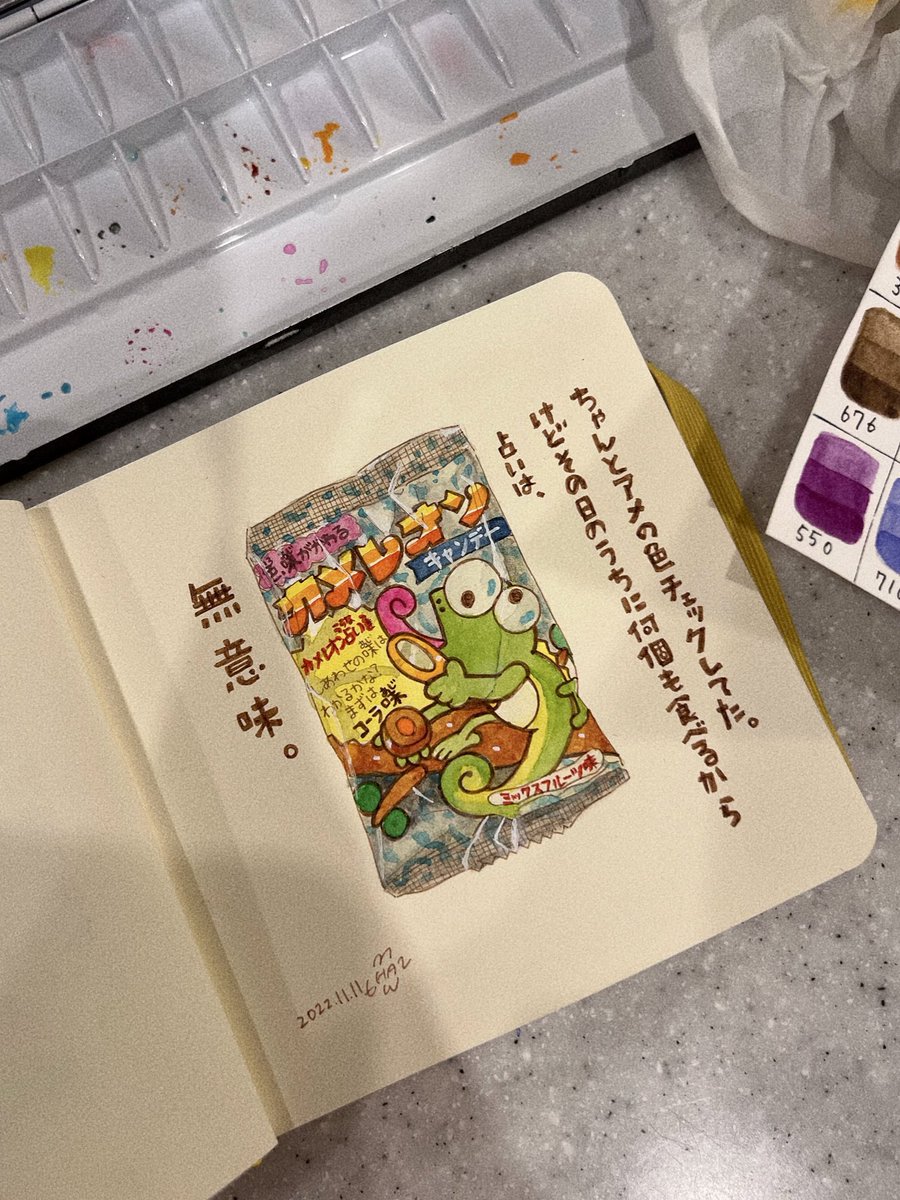 ちゃんとアメの色チェックしてた。
けどその日のうちに何個も食べるから
占いは、
無意味。
色・味がかわる
カメレオン
キャンデー
カメレオン占い
しあわせの味は
わかるかな?
まずは
コーラ味
ミックスフルーツ味
2022.11.11
676
550